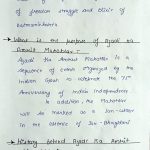 of freedom struggle and elixir of
* What is the purpose of Azadi ka
Amrit Mahotsav :-
Azadi Ka Amrut Mahotsav is a
sequence of events organized by the
Indian Govt to celebrate the 75th
Anniversary of India's Independence
In addition, the Mahotsav
will be marked as a Jan-Utsav
in the essence of Jan-Bhagidari
* History behind Azadi Ka Amrit